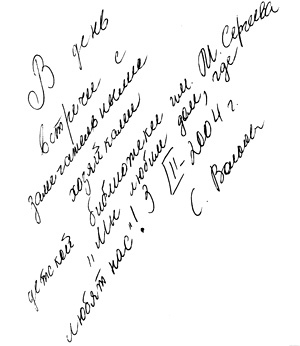 В день
встречи с
замечательными
хозяйками
детской библиотеки им. М. Сергеева
"Мы любим дом, где
любят нас"! 3 III-2004 г.
С.